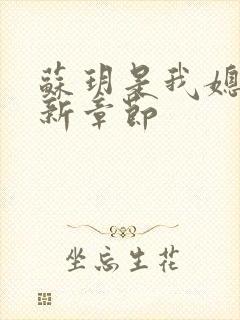 蘇玥是我媳
新章節
坐忘生花